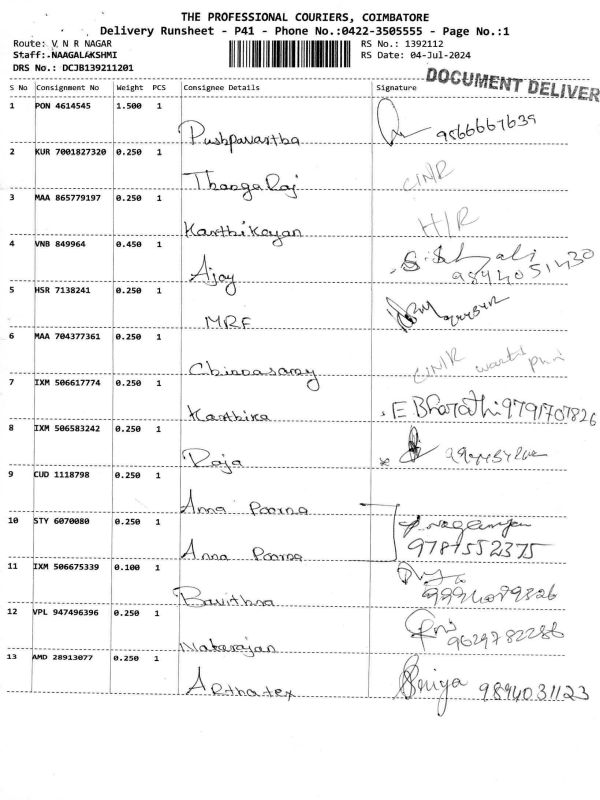 THE PROFESSIONAL COURIERS, COIMBATORE
Delivery Runsheet - P41 - Phone No.:0422-3505555 - Page No.:1
Route: V N R NAGAR RS No.: 1392112
Staff: NAAGALAKSHMI RS Date: 04-Jul-2024
DRS No.: DCJB139211201
DOCUMENT DELIVER
S No Consignment No Weight PCS Consignee Details Signature
1 PON 4614545 1.500 1
Pushpavartha 9566667639
2 KUR 7001827320 0.250 1
Thangaraj CINR
3 MAA 865779197 0.250 1
Karthikeyan H/R
4 VNB 849964 0.450 1
Ajay
9844051430
5 HSR 7138241 0.250 1
MRF
6 MAA 704377361 0.250 1
Chinnasamy CINR
7 IXM 506617774 0.250 1
Karthika E Bharathi 9791701826
8 IXM 506583242 0.250 1
Raja
9 CUD 1118798 0.250 1
Anna Poorna
10 STY 6070080 0.250 1
Anna Poorna 9787552375
11 IXM 506675339 0.100 1
Bavithra 9994099326
12 VPL 947496396 0.250 1
Natarajan 9629782286
13 AMD 28913077 0.250 1
Arthatex Shriya 9894031123